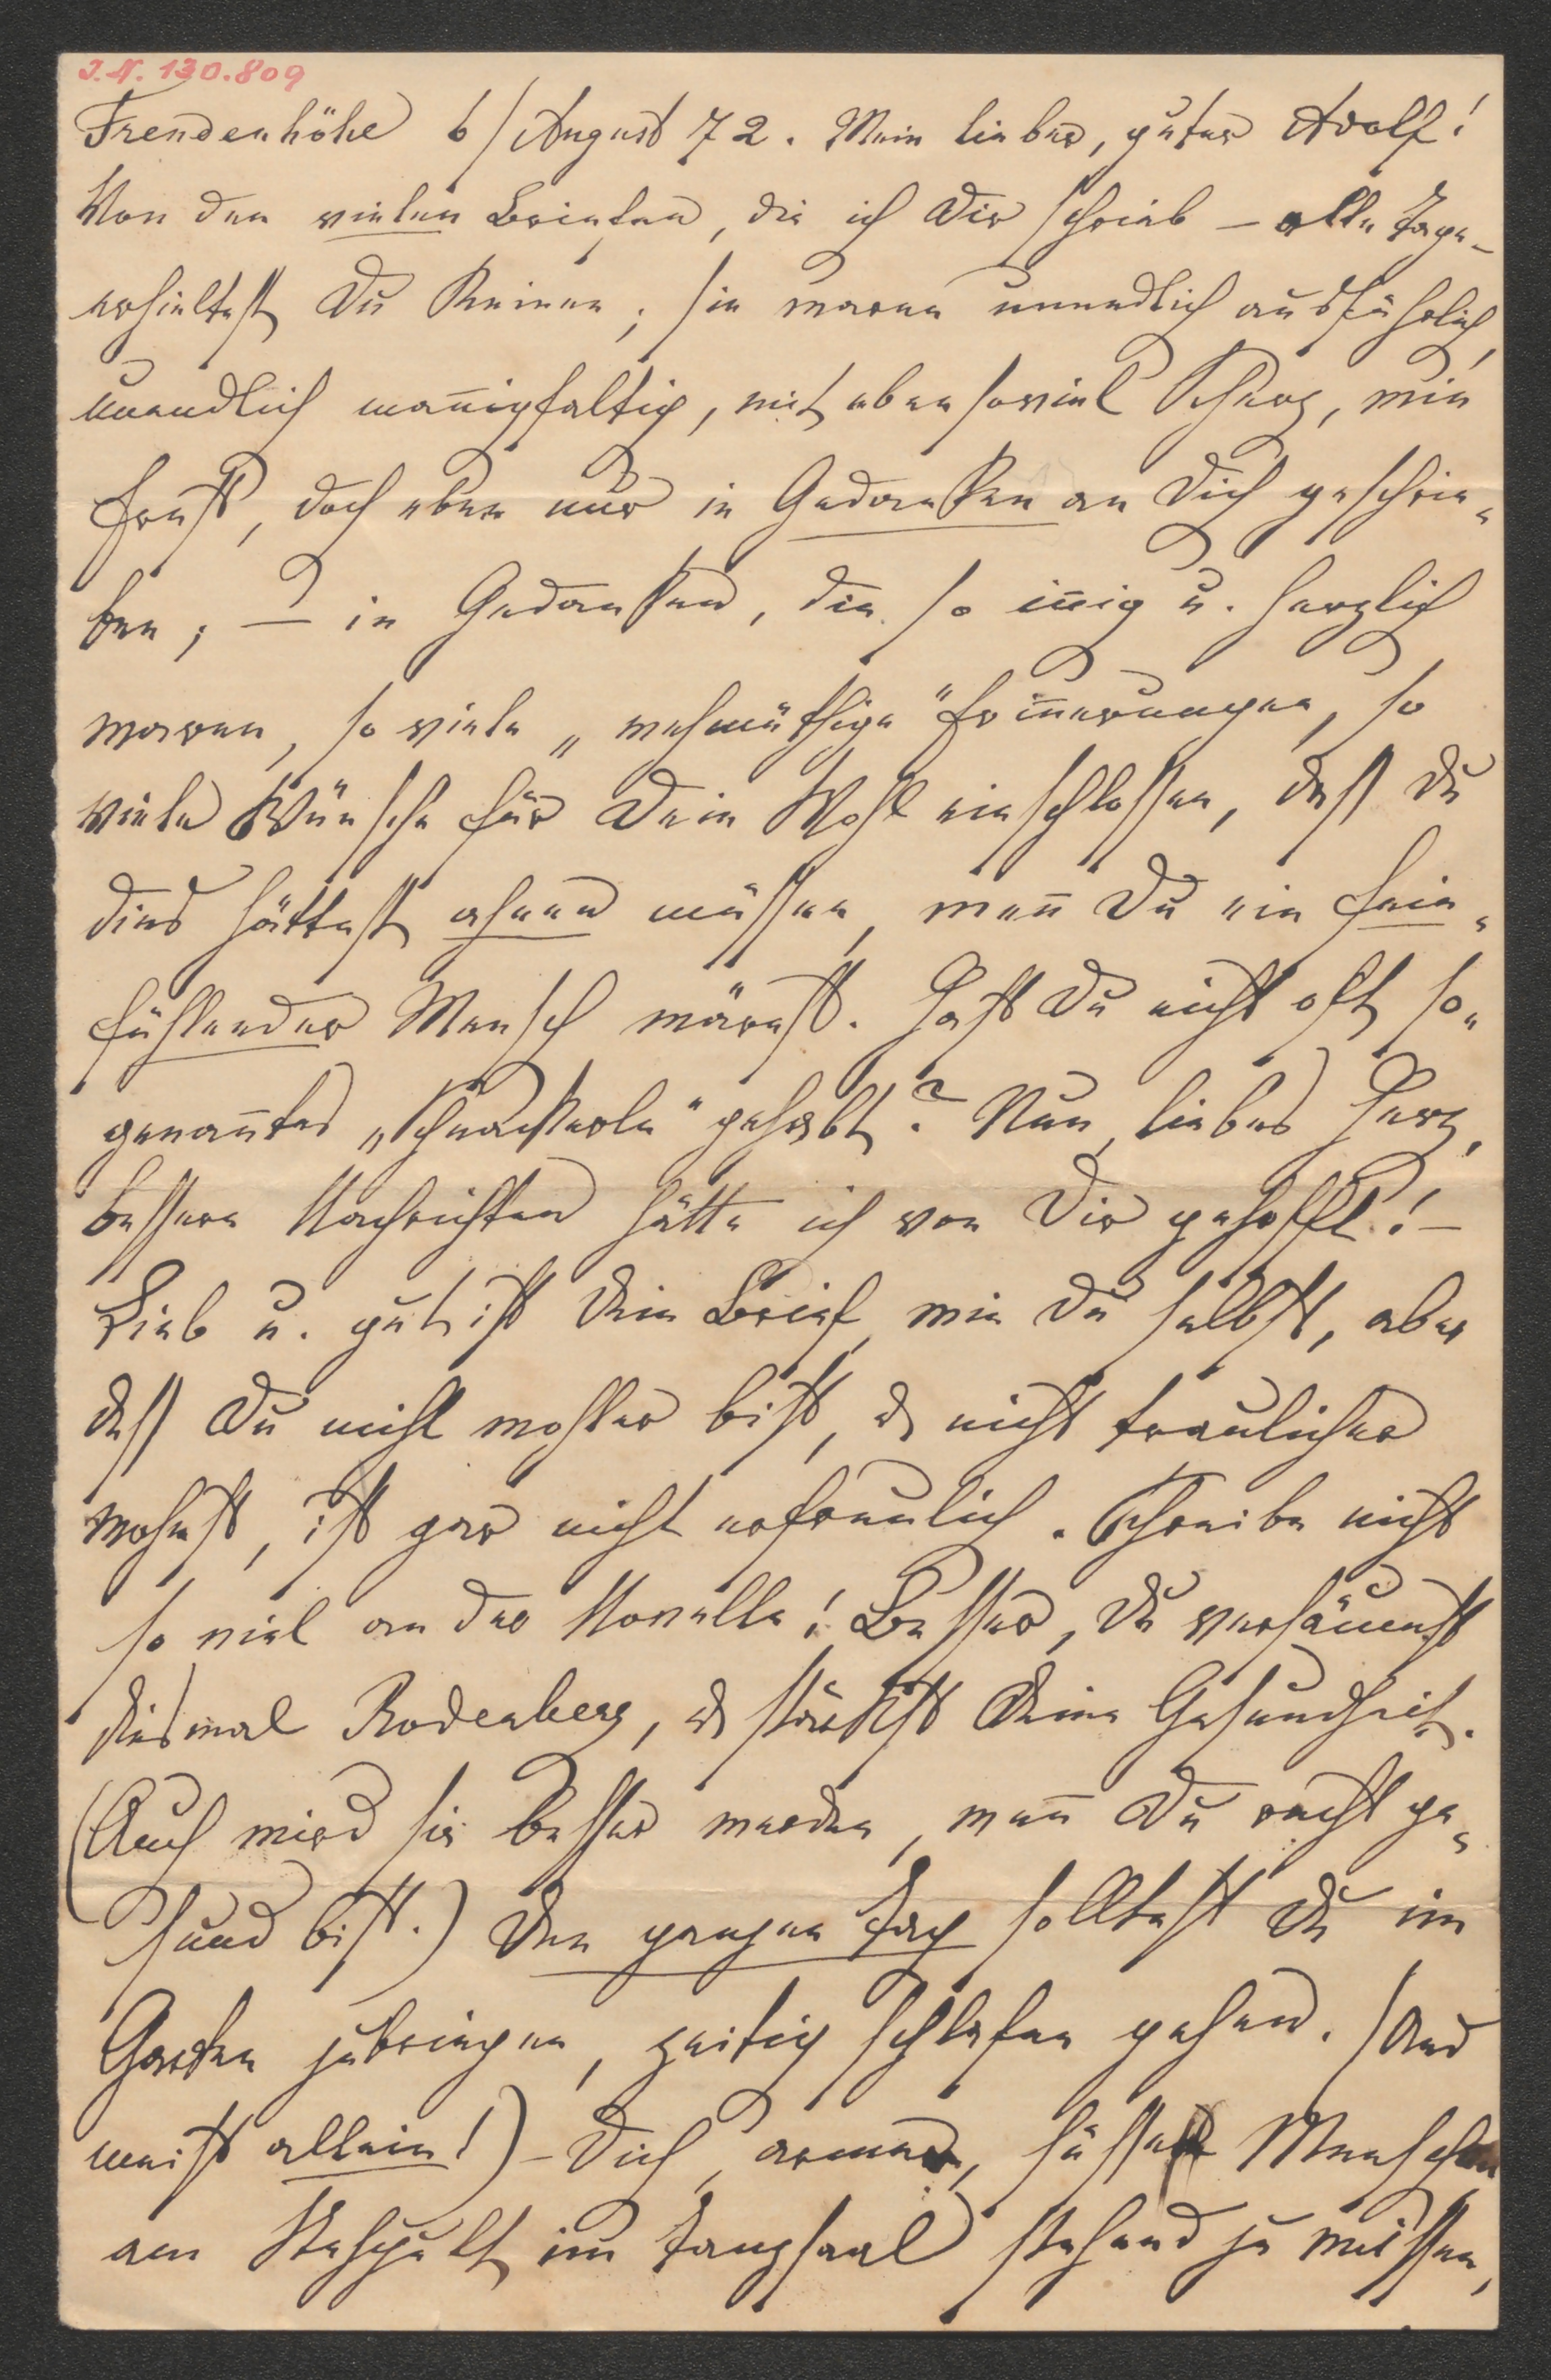 J.N. 130.809
Freudenhöhe 6/August 72. Mein lieber, guter Adolf!
Von den vielen Briefen, die ich Dir schrieb – alle Tage –
erhieltest Du Keinen; sie waren unendlich ausführlich,
unendlich man̄igfaltig, mit ebensoviel Scherz, wie
Ernst, doch eben nur in Gedanken an Dich geschrie-
ben; – in Gedanken, die so in̄ig u. herzlich
waren, so viele „wehmüthige" Erin̄erungen, so
viele Wünsche für Dein Wohl einschlossen, daß Du
dies hättest ahnen müssen, wen̄ Du ein fein-
fühlender Mensch wärest. Hast Du nicht oft so-
genan̄tes „Schnackerln" gehabt? Nun, liebes Herz,
bessere Nachrichten hätte ich von Dir gehofft! –
Lieb u. gut ist Dein Brief, wie Du selbst, aber
daß Du nicht wohler bist, u nicht traulicher
wohnst, ist gar nicht erfreulich. Schreibe nicht
so viel an der Novelle! Besser, Du versäumst
diesmal Rodenberg, u stärkst Deine Gesundheit.
(Auch wird sie besser werden, wen̄ Du recht ge-
sund bist.) Den ganzen Tag solltest Du im
Garten zubringen, zeitig schlafen gehen. (Und
meist allein!) – Dich, armen, süßen Menschen
am Stehpult im Tanzsaal stehend zu wissen,